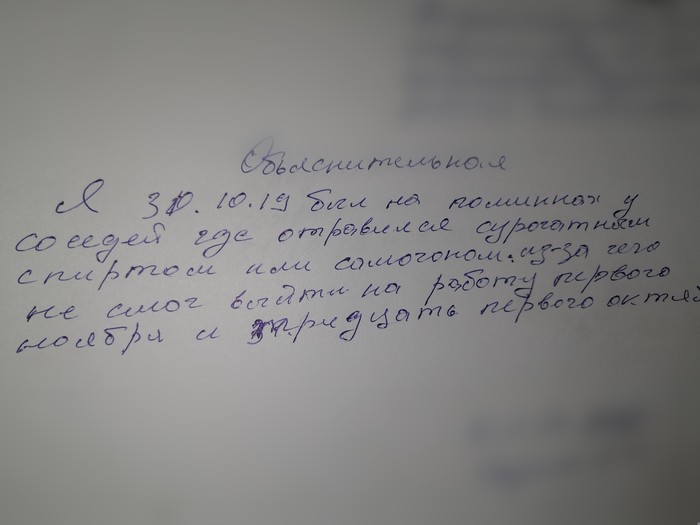 Обьяснительная
Я 30.10.19 был на поминках у
соседей где отравился сурогатным
спиртом или самогоном. из-за чего
не смог выйти на работу первого
ноября и тридцать первого октяб